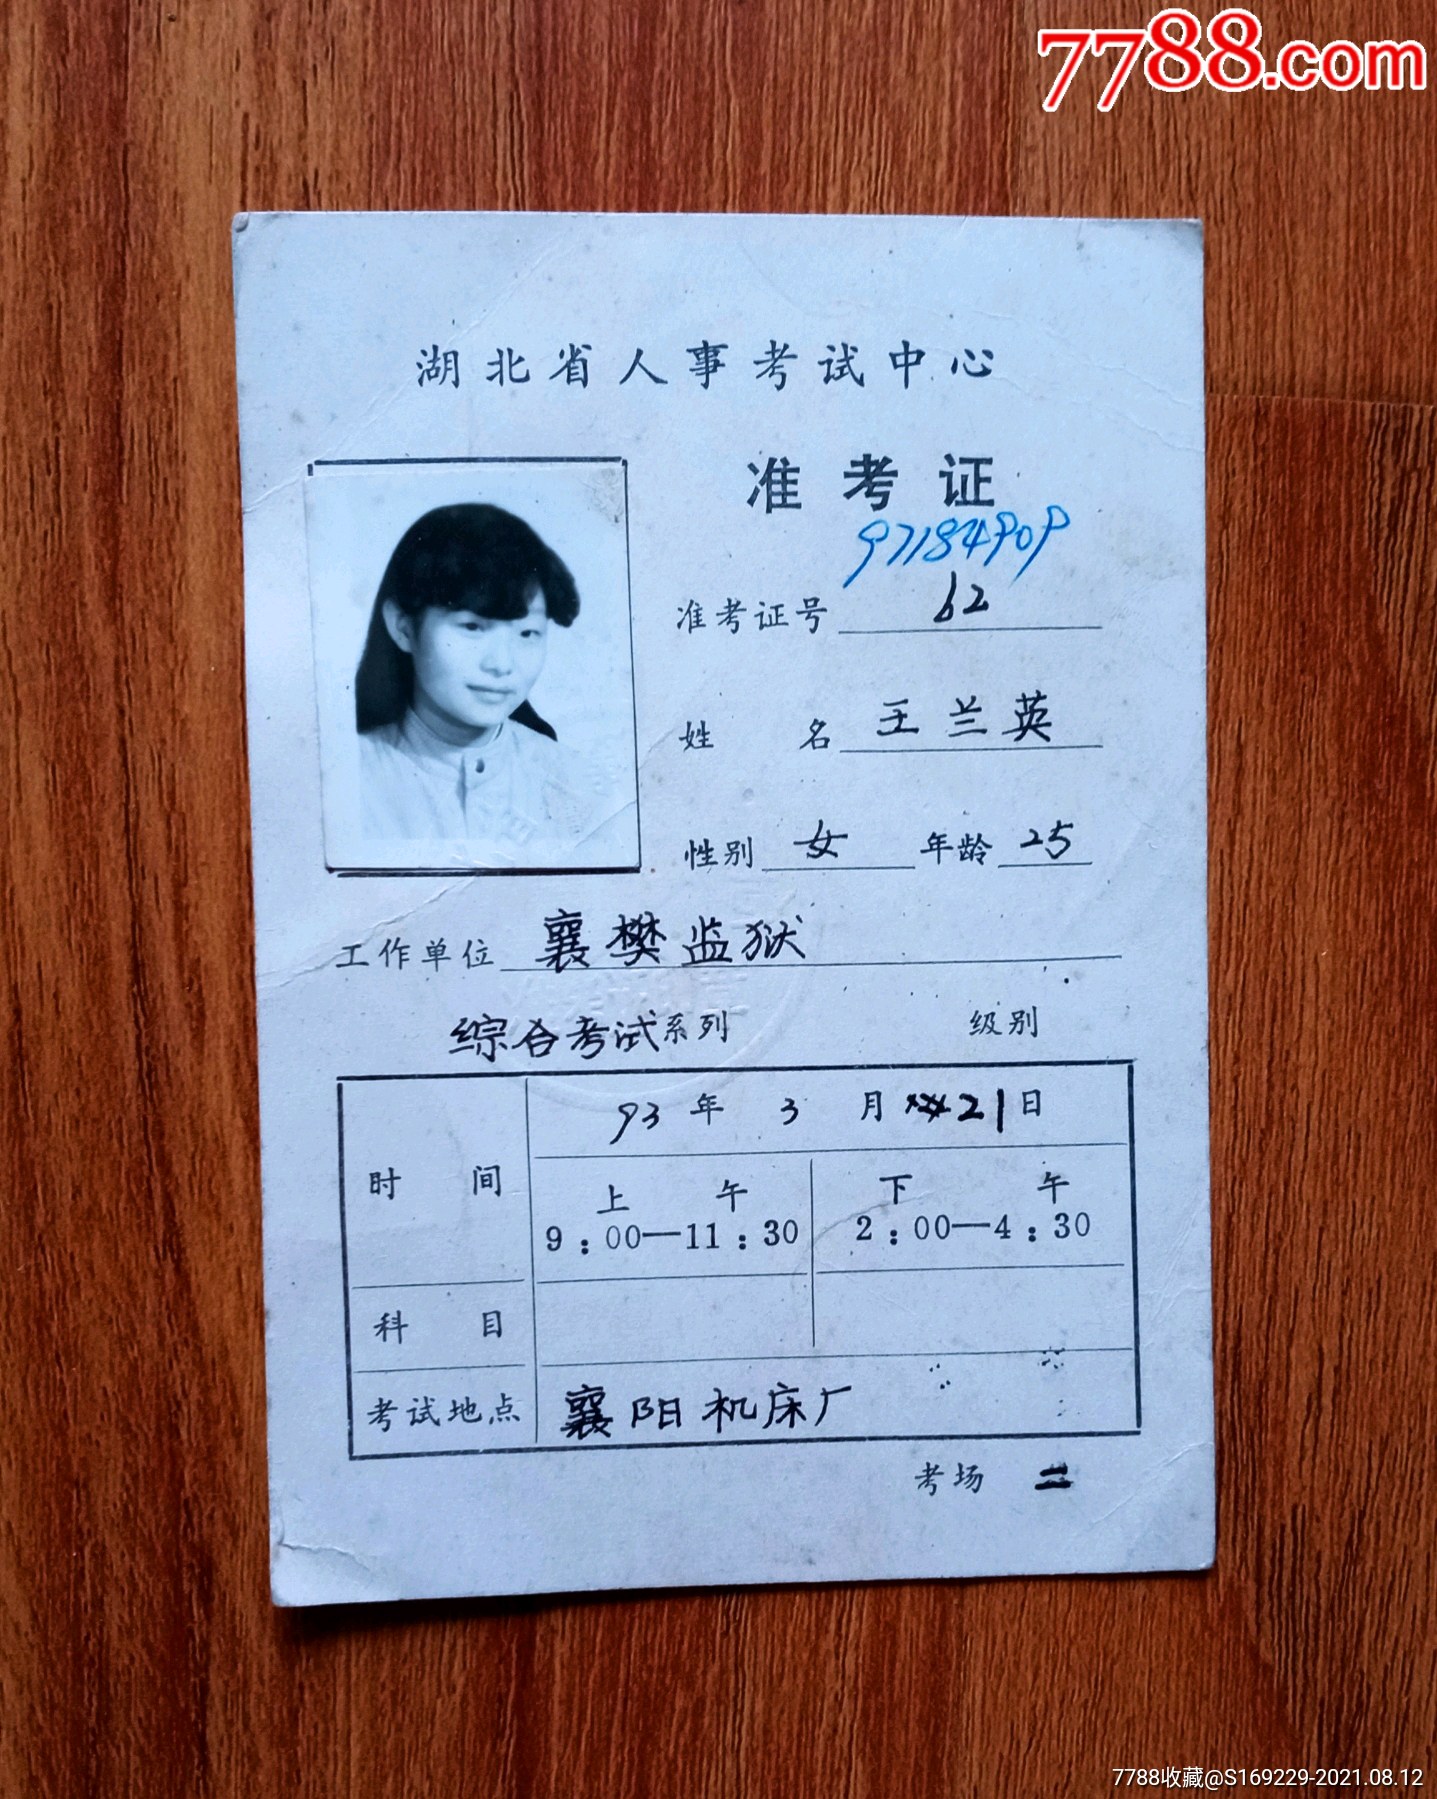 7788.com
湖北省人事考试中心
准考证
97184909
准考证号 62
姓名 王兰英
性别 女 年龄 25
工作单位 襄樊监狱
综合考试系列 级别
93年3月21日
时间
上午 下午
9:00—11:30 2:00—4:30
科目
考试地点 襄阳机床厂
考场 二
7788收藏@S169229-2021.08.12